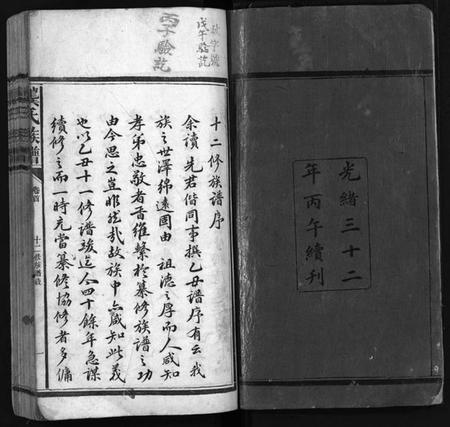 光緒三十二
年丙午續刊
戊午驗訖
丙子驗訖
十二修族譜序
余讀先君偕同事撰乙丑譜序有云我
族之世澤綿遠固由祖德之厚而人咸知
孝弟忠敬者晋維繫於纂修族譜之功
由今思之豈非然哉故族中亦咸知此義
也以乙丑十一修譜竣迄今四十餘年急謀
續修之而一時充當纂修協修者多傭
氏族譜
卷首